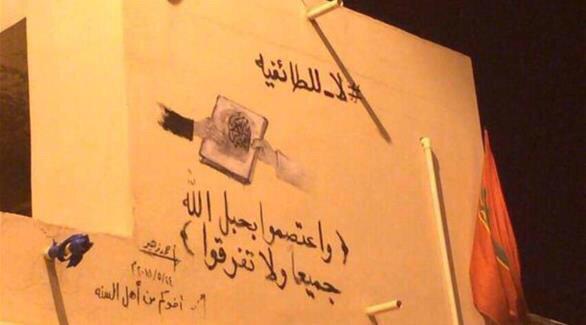 #لا_للطائفيه
﴿واعتصموا بحبل الله
جميعا ولا تفرقوا﴾
أحمد زهير
٢٠١٥/٥/٢٤
أخوكم من أهل السنه